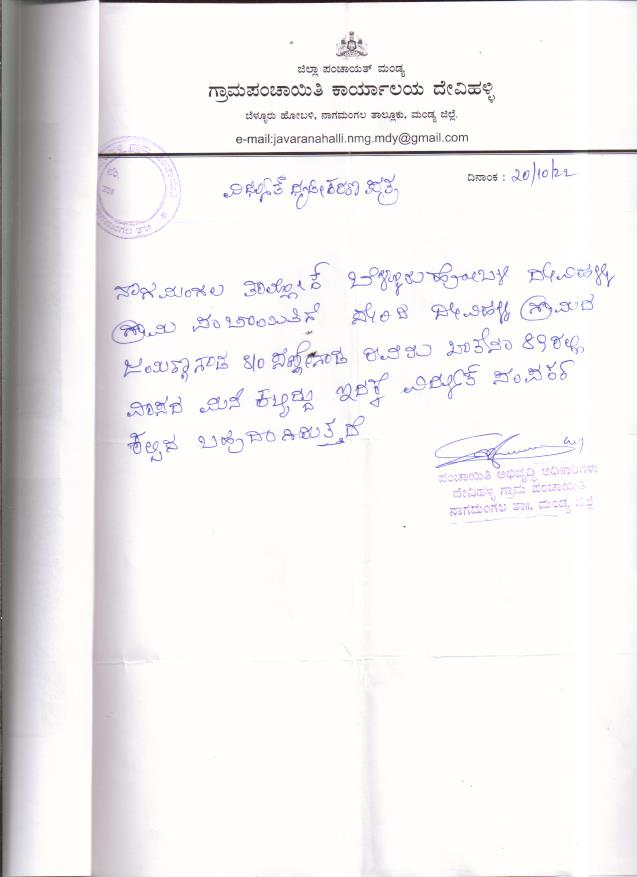 ಜಿಲ್ಲಾ ಪಂಚಾಯತ್ ಮಂಡ್ಯ
ಗ್ರಾಮಪಂಚಾಯಿತಿ ಕಾರ್ಯಾಲಯ ದೇವಿಹಳ್ಳಿ
ಬೆಳ್ಳೂರು ಹೋಬಳಿ, ನಾಗಮಂಗಲ ತಾಲ್ಲೂಕು, ಮಂಡ್ಯ ಜಿಲ್ಲೆ.
e-mail:javaranahalli.nmg.mdy@gmail.com
ದಿನಾಂಕ : 20/10/22
ವಿದ್ಯುತ್ ಧೃಢೀಕರಣ ಪತ್ರ
ನಾಗಮಂಗಲ ತಾಲ್ಲೋಕ್ ಬೆಳ್ಳೂರು ಹೋಬಳಿ ದೇವಿಹಳ್ಳಿ
ಗ್ರಾಮ ಪಂಚಾಯಿತಿಗೆ ಸೇರಿದ ದೇವಿಹಳ್ಳಿ ಗ್ರಾಮದ
S/o ರವರು ಖಾತೆನಂ 89 ರಲ್ಲಿ
ವಾಸದ ಮನೆ ಕಟ್ಟಿದ್ದು ಇದಕ್ಕೆ ವಿದ್ಯುತ್ ಸಂಪರ್ಕ
ಕಲ್ಪಿಸ ಬಹುದಾಗಿರುತ್ತದೆ
ಪಂಚಾಯಿತಿ ಅಭಿವೃದ್ಧಿ ಅಧಿಕಾರಿಗಳು
ದೇವಿಹಳ್ಳಿ ಗ್ರಾಮ ಪಂಚಾಯಿತಿ
ನಾಗಮಂಗಲ ತಾ||, ಮಂಡ್ಯ ಜಿಲ್ಲೆ